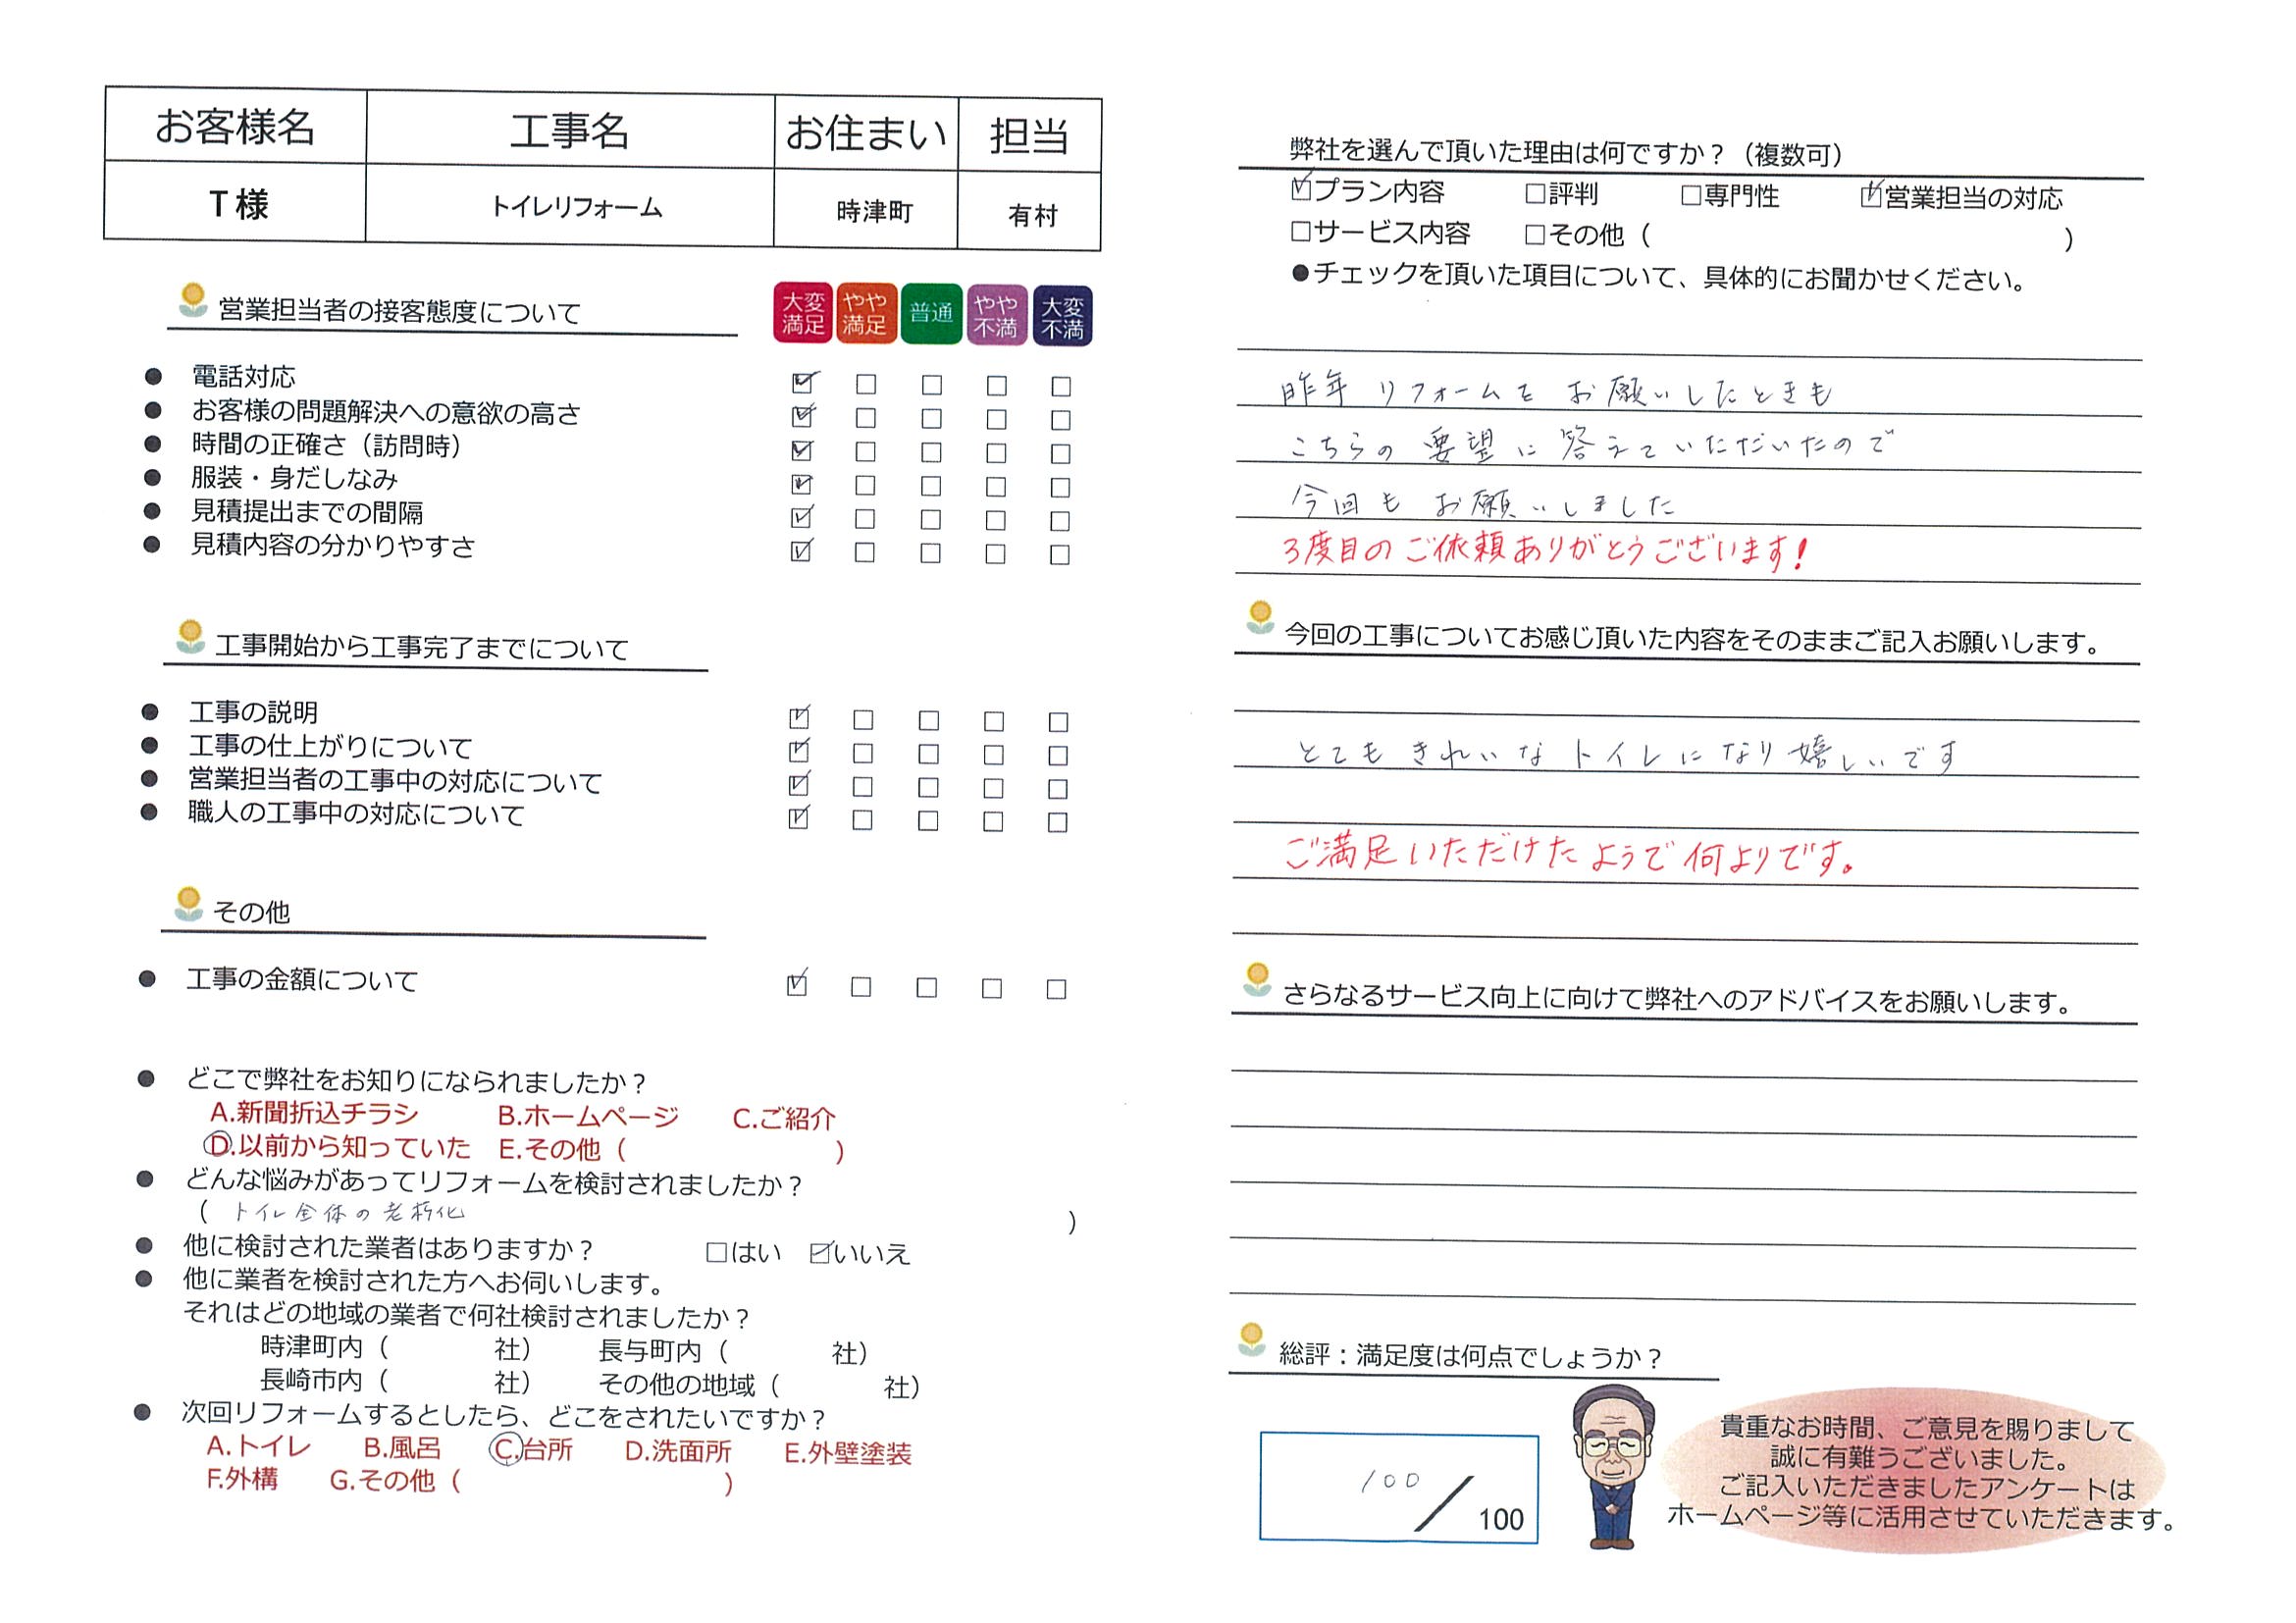 お客様名 工事名 お住まい 担当
T様 トイレリフォーム 時津町 有村
営業担当者の接客態度について
大変満足 やや満足 普通 やや不満 大変不満
● 電話対応 ☑ □ □ □ □
● お客様の問題解決への意欲の高さ ☑ □ □ □ □
● 時間の正確さ（訪問時） ☑ □ □ □ □
● 服装・身だしなみ ☑ □ □ □ □
● 見積提出までの間隔 ☑ □ □ □ □
● 見積内容の分かりやすさ ☑ □ □ □ □
工事開始から工事完了までについて
● 工事の説明 ☑ □ □ □ □
● 工事の仕上がりについて ☑ □ □ □ □
● 営業担当者の工事中の対応について ☑ □ □ □ □
● 職人の工事中の対応について ☑ □ □ □ □
その他
● 工事の金額について ☑ □ □ □ □
● どこで弊社をお知りになられましたか？
A.新聞折込チラシ B.ホームページ C.ご紹介
D.以前から知っていた E.その他（ ）
● どんな悩みがあってリフォームを検討されましたか？
（ トイレ全体の老朽化 ）
● 他に検討された業者はありますか？ □はい ☑いいえ
● 他に業者を検討された方へお伺いします。
それはどの地域の業者で何社検討されましたか？
時津町内（ 社） 長与町内（ 社）
長崎市内（ 社） その他の地域（ 社）
● 次回リフォームするとしたら、どこをされたいですか？
A.トイレ B.風呂 C.台所 D.洗面所 E.外壁塗装
F.外構 G.その他（ ）
弊社を選んで頂いた理由は何ですか？（複数可）
☑プラン内容 □評判 □専門性 ☑営業担当の対応
□サービス内容 □その他（ ）
●チェックを頂いた項目について、具体的にお聞かせください。
昨年 リフォームを お願いしたときも
こちらの 要望に 答えていただいたので
今回も お願いしました
3度目のご依頼ありがとうございます！
今回の工事についてお感じ頂いた内容をそのままご記入お願いします。
とても きれいな トイレになり 嬉しいです
ご満足いただけたようで何よりです。
さらなるサービス向上に向けて弊社へのアドバイスをお願いします。
総評：満足度は何点でしょうか？
100／100
貴重なお時間、ご意見を賜りまして
誠に有難うございました。
ご記入いただきましたアンケートは
ホームページ等に活用させていただきます。